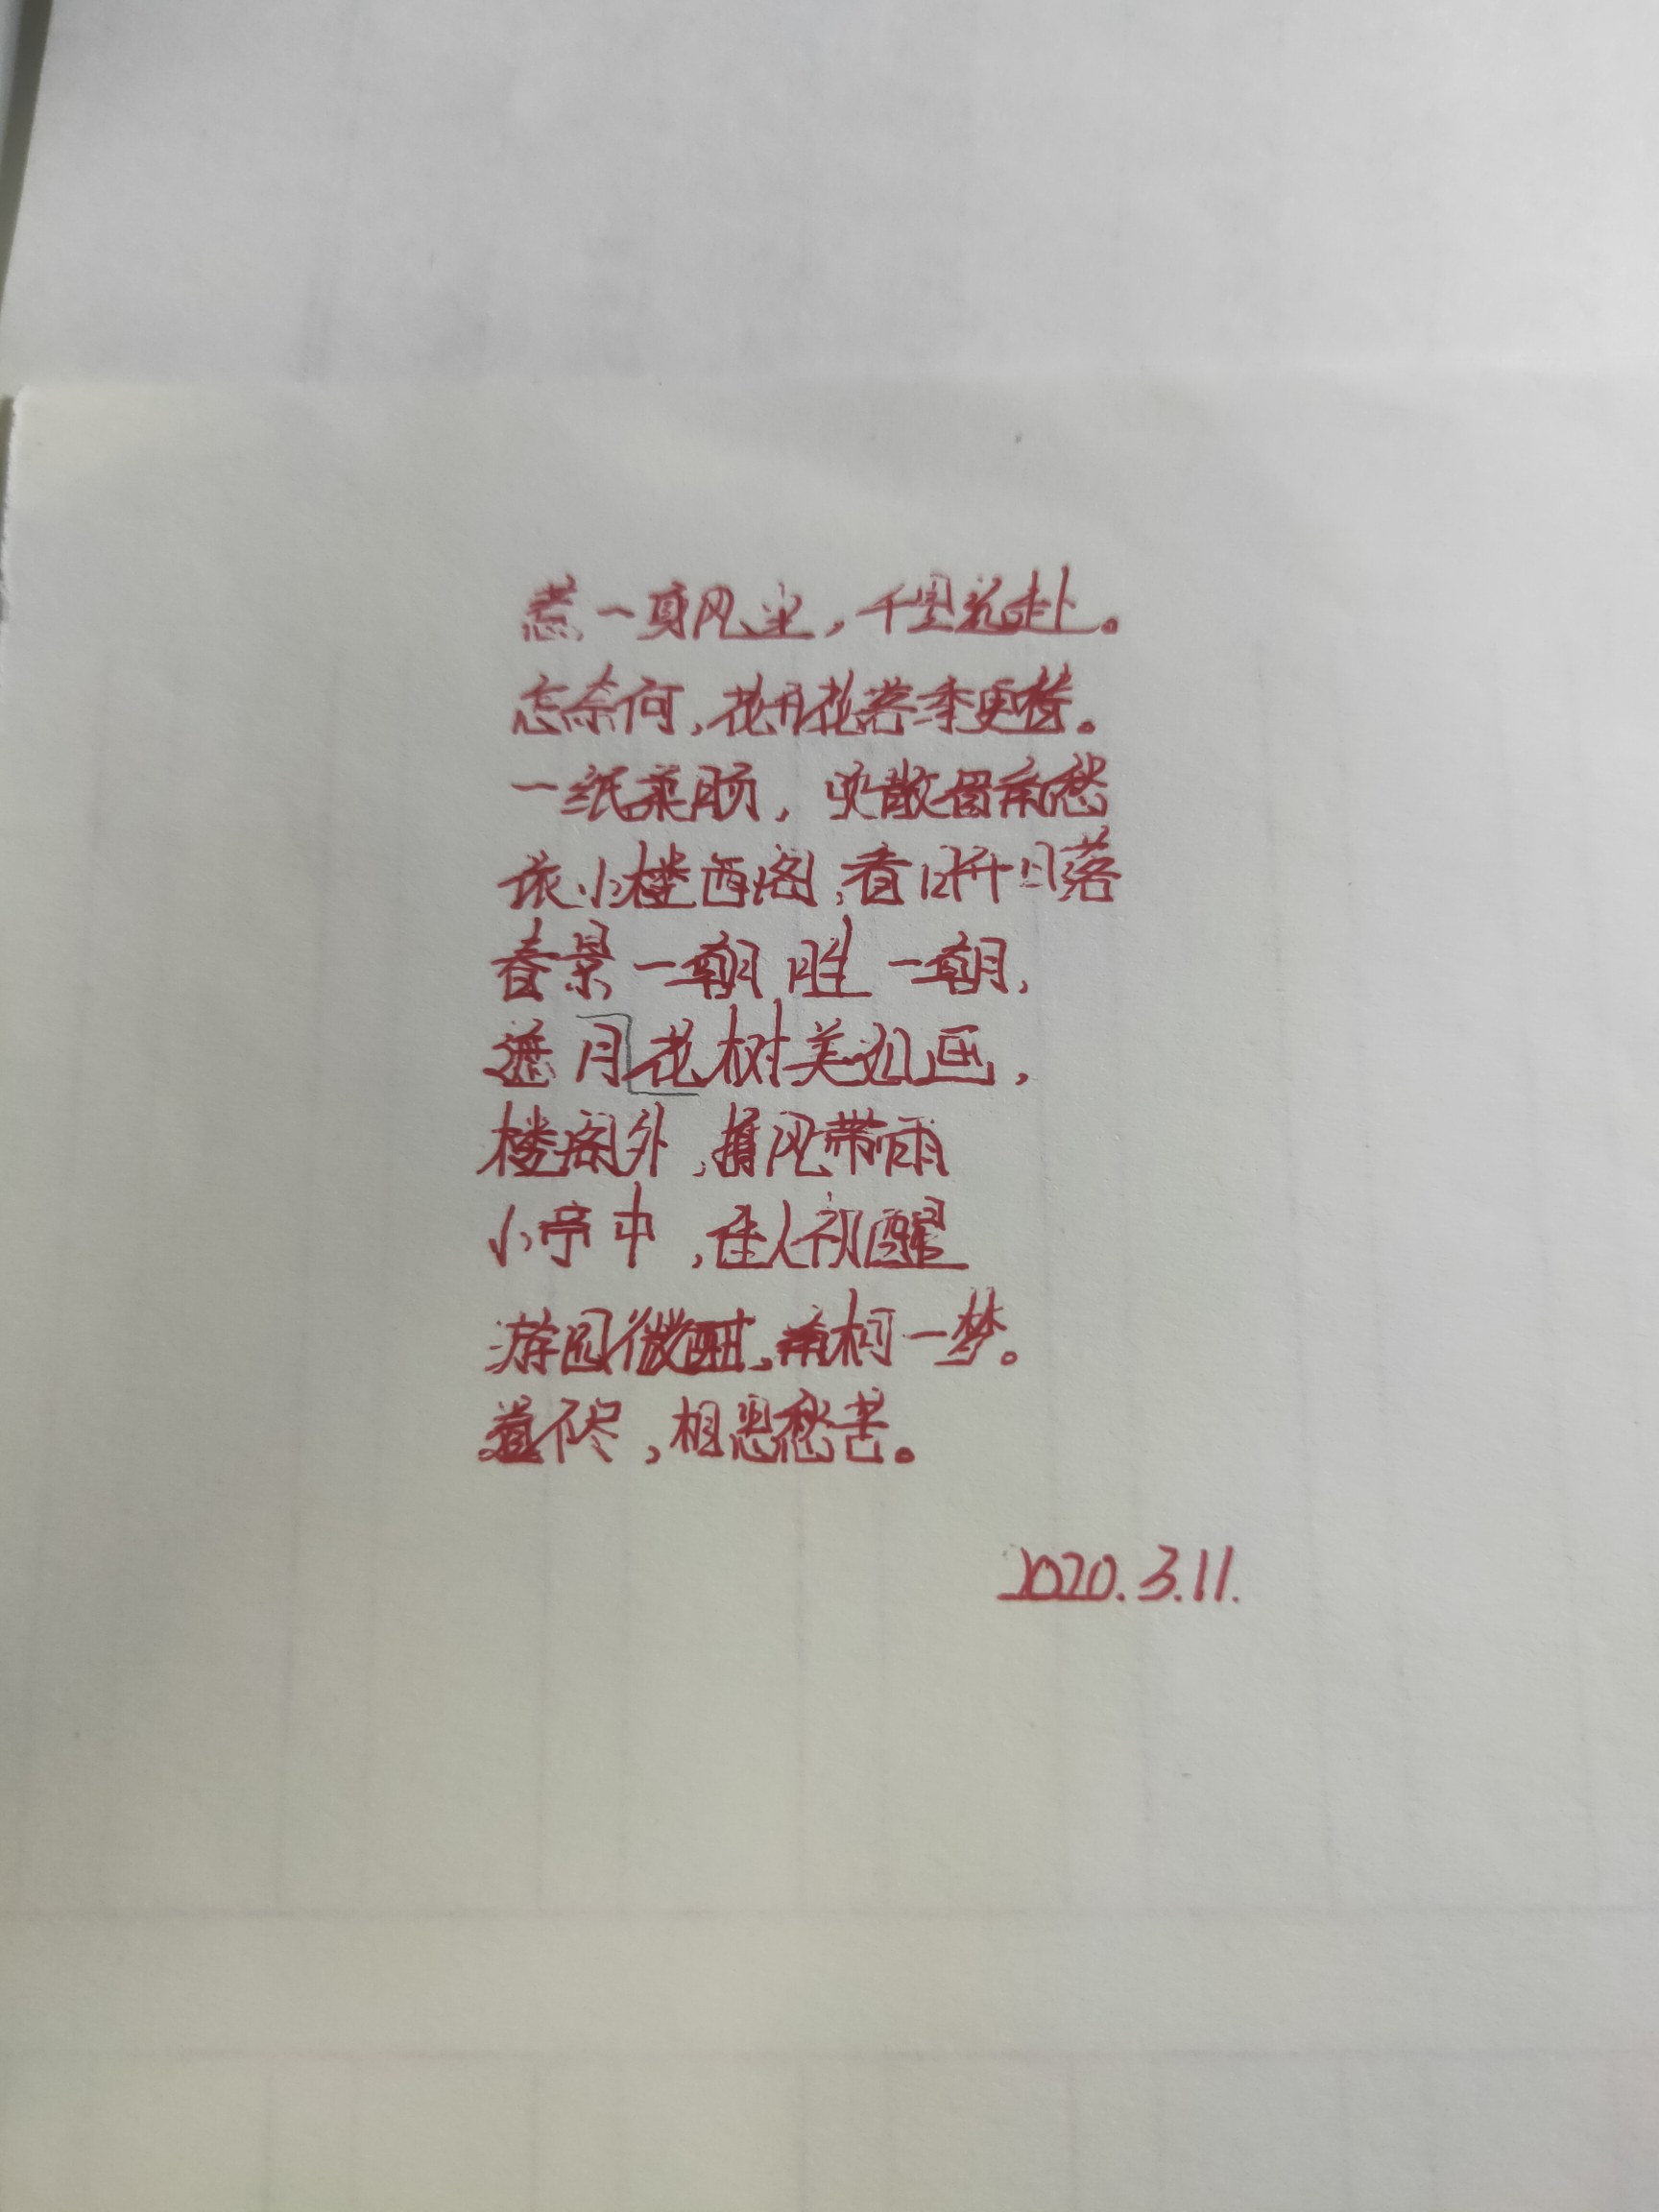 惹一身风尘，千里远赴。
忘奈何，花开花落季更替。
一纸柔肠，吹散眉角愁
依小楼西阁，看日升日落
春景一朝胜一朝，
遮月花树美如画，
楼阁外，携风带雨
小亭中，佳人初醒
游园微酣，南柯一梦。
道不尽，相思愁苦。
2020.3.11.